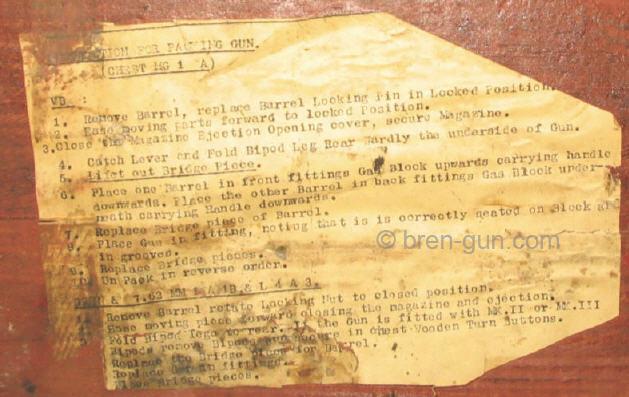 TION FOR PACKING GUN.
(CHEST MG 1 A)
VB :
1. Remove Barrel, replace Barrel Locking Pin in Locked Position.
2. Ease moving parts forward to locked Position.
3.Close the Magazine Ejection Opening cover, secure Magazine.
4. Catch Lever and Fold Bipod Leg Rear Wardly the underside of Gun.
5. Lifet out Bridge Piece.
6. Place one Barrel in front fittings Gas Block upwards carrying handle
downwards. Place the other Barrel in back fittings Gas Block under-
neath carrying Handle downwards.
7. Replace Bridge piece of Barrel.
8. Place Gun in fitting, noting that is is correctly seated on Block
in grooves.
9. Replace Bridge pieces.
10. Un Pack in reverse order.
& 7.62 MM L 4 A 3.
Remove Barrel rotate Locking Nut to closed position.
Ease moving piece forward closing the magazine and ejection.
Fold Bipod legs to rear. If the Gun is fitted with MK.II or MK.III
Bipods remove Bipods and secure in Chest Wooden Turn Buttons.
Replace the Bridge piece for Barrel.
Replace fittings.
Place Bridge pieces.
© bren-gun.com